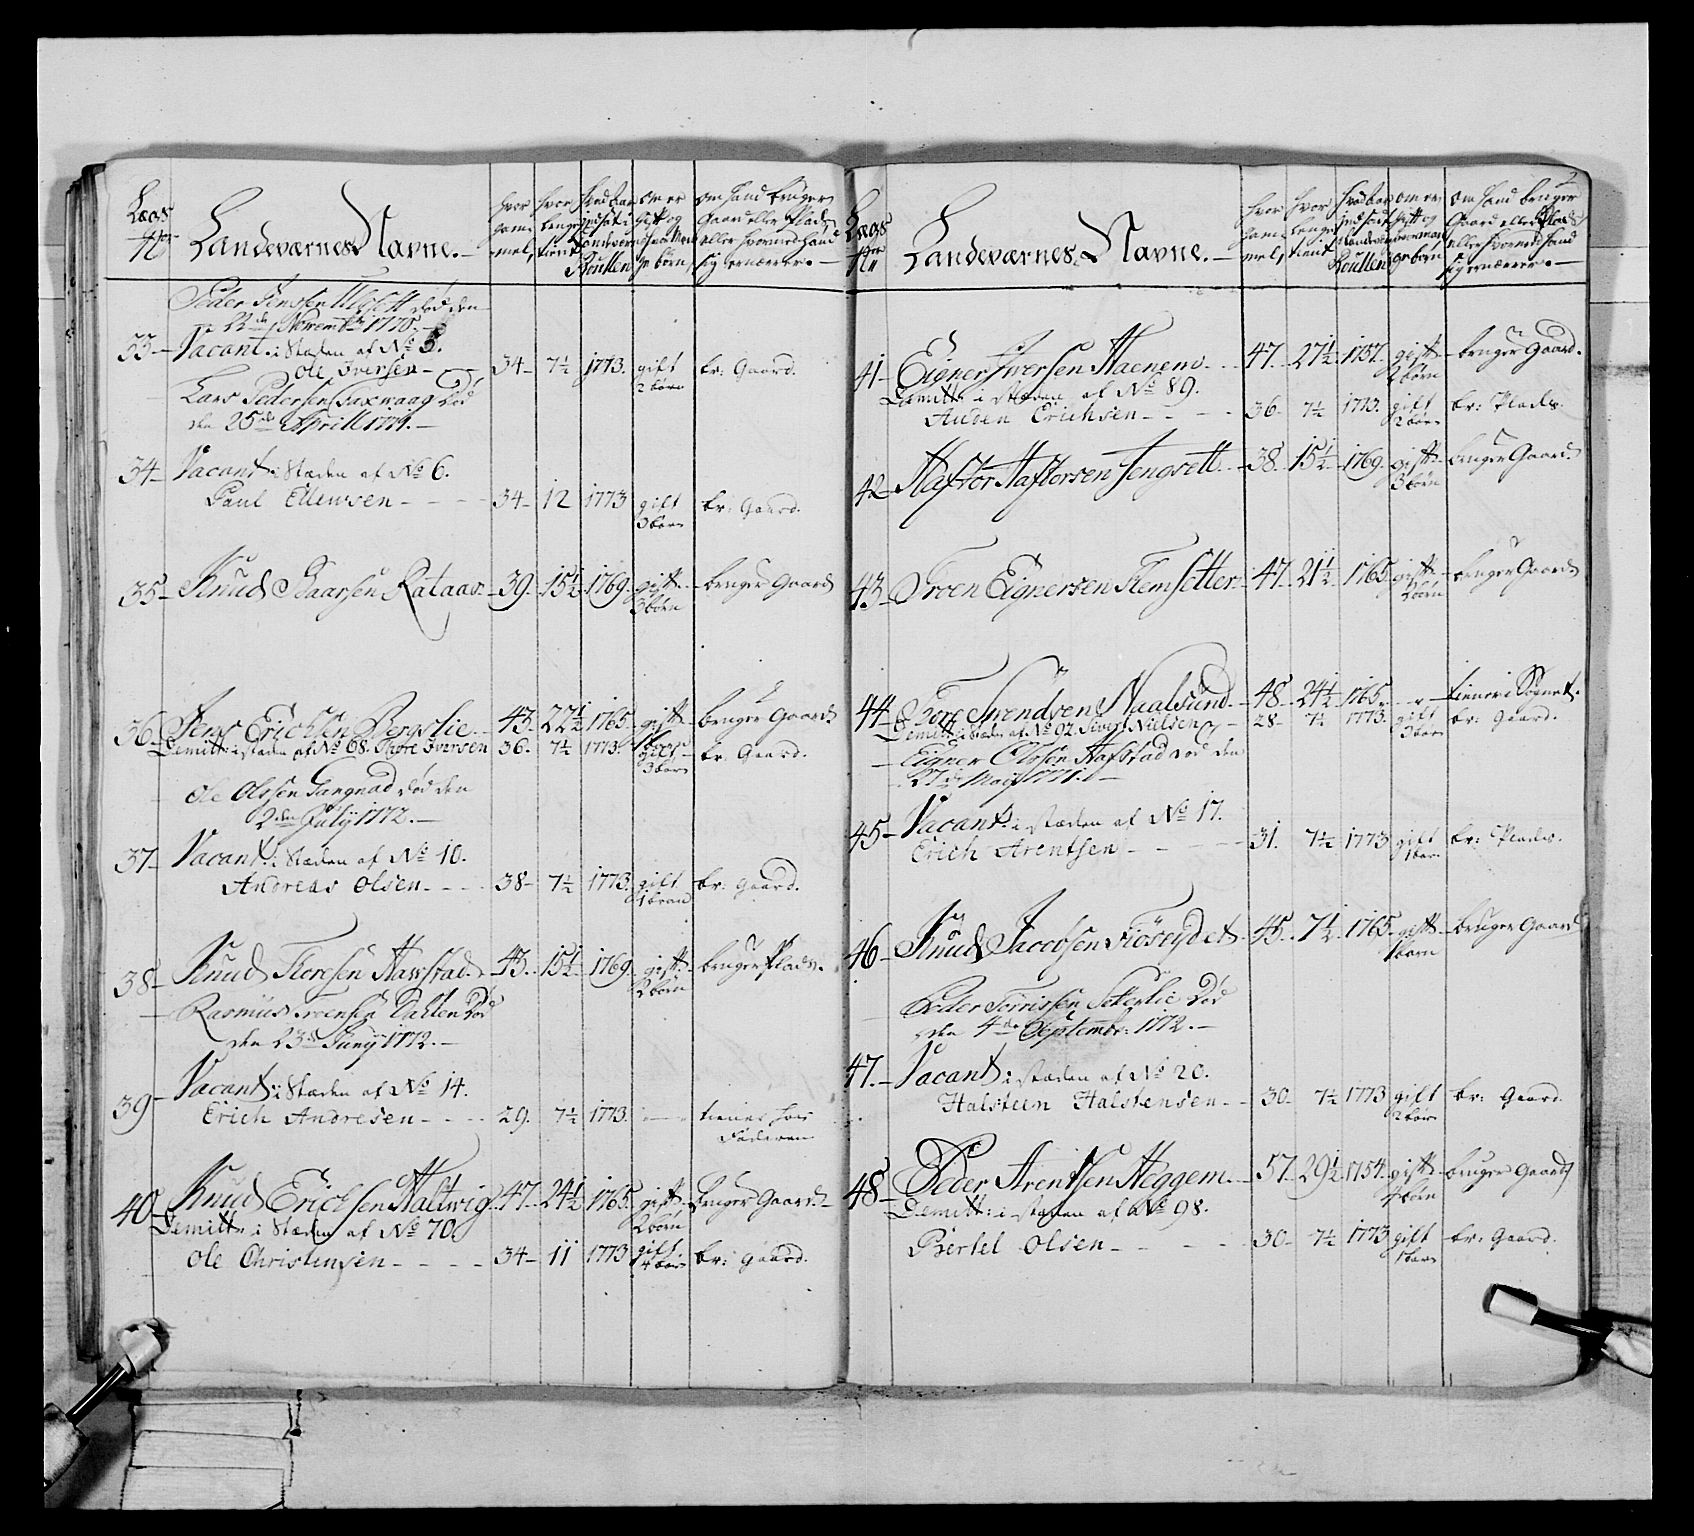 Lægs No
Landeværnes Navne.
hvor gammel,
hvor lenge tient
om er gift og hvor mange børn,
om hand bruger Gaard eller Plads eller hvormed hand sig ernærer.
Peder Jenssen Ulsett død den
22de Novembr 1770.
33 Vacant i Stæden af No 5.
Ole Iversen 34 7½ 1773. gift 2 børn br: Gaard.
Lars Pedersen Saxwaag Død
den 25de Aprill 1771.
34 Vacant i Stæden af No 6.
Paul Ellewsen 34 12 1773 gift 3 børn br: Gaard.
35 Knud Baarsen Rataas 39. 15½ 1769. gift 3 børn bruger Gaard
36 Jens Erichsen Bergslie 43. 22½ 1765. gift bruger Gaard
Demitt: i stæden af No 68. Thore Iversen 36. 7½ 1773. gift 3 børn br: Gaard.
Ole Olssen Gangnad død den
2den July 1772.
37 Vacant i Stæden af No 10.
Andreas Olsen 38 7½ 1773. gift 1 barn br: Gaard.
38 Knud Floresen Hawstad 43. 15½ 1769. gift 2 børn bruger Plads.
Rasmus Troensen Dahlen Død
den 23de Juny 1772.
39 Vacant i Stæden af No 14.
Erich Andresen 29. 7½ 1773. tienes hos Faderen
40 Knud Erichsen Haltwig 47. 24½ 1765. gift 2 børn bruger Gaard
Demitt: i Stæden af No 70.
Ole Christensen 34 11 1773 gift 4 børn br: Gaard.
2
Lægs No
Landeværnes Navne.
hvor gammel,
hvor lenge tient
om er gift og hvor mange børn
om hand bruger Gaard eller Plads eller hvormed hand sig ernærer.
41 Eigner Iwersen Haenem 47. 27½ 1757. gift 2 børn bruger Gaard.
Demitt: i stæden af No 89.
Auden Erichsen 36 7½ 1773. gift 2 børn br: Plads.
42 Haftor Haftorsen Jengsett 38. 15½ 1769. gift 3 børn bruger Gaard
43 Troen Eignersen Remsetter 47. 21½ 1765 gift 2 børn bruger Gaard
44 Tore Svendsen Maalsund 48. 24½ 1765. tiener i Sognet.
Demitt: i stæden af No 92. Siver Nielsen 28 7½ 1773. gift 3 børn br: Gaard.
Eigner Olssen Hafstad død den
27de Maij 1771.
45 Vacant i stæden af No 17.
Erich Arentsen 31. 7½ 1773 gift 1 barn br: Plads.
46 Knud Jacobsen Fiöseydet 45. 7½ 1765. gift 1 barn bruger Gaard
Peder Torrissen Setterlie Død
den 4de Septembr: 1772.
47. Vacant i stæden af No 20.
Halsteen Halstensen 30 7½ 1773 gift 2 børn br: Gaard.
48 Peder Arentsen Heggem 57. 29½ 1754. gift 4 børn bruger Gaard
Demitt: i stæden af No 98.
Bertel Olsen 30 7½ 1773 gift 1 barn br: Gaard.